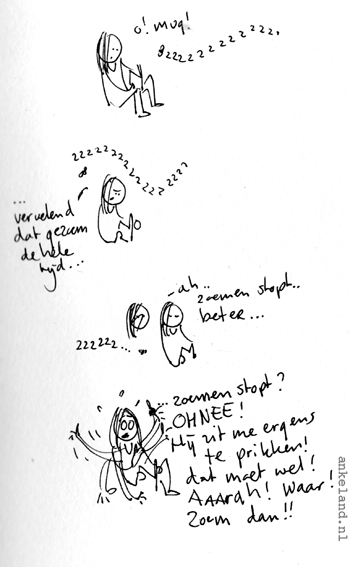 o! mug!
zzzzzzzzzzzz
zzzzzzzzzzzzzzzz
...
vervelend
dat gezoem
de hele
tijd...
ah..
zoemen stopt..
beter...
zzzzzz...
... zoemen stopt?
OHNEE!
Hij zit me ergens
te prikken!
dat moet wel!
AAARgh! waar!
Zoem dan!!
ankeland.nl